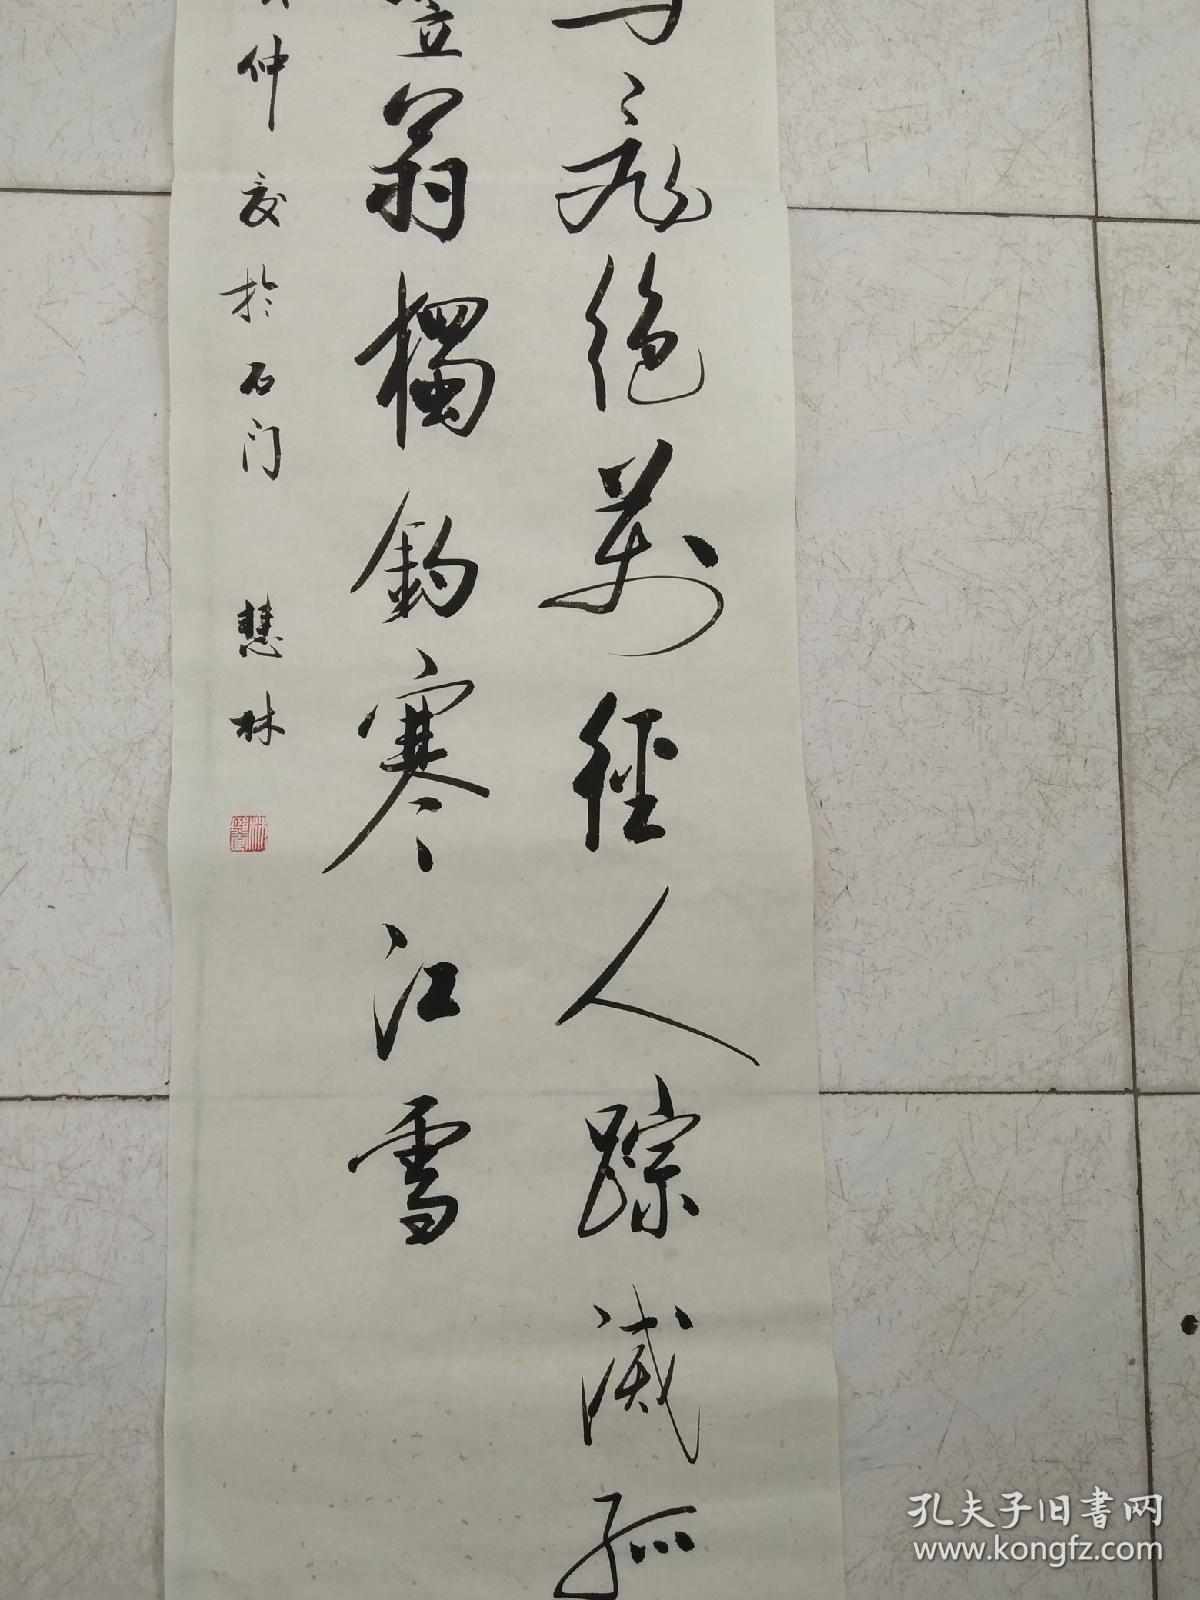 鸟飛绝萬径人踪滅孤
笠翁獨釣寒江雪
仲夏於石门 慧林
孔夫子旧书网
www.kongfz.com